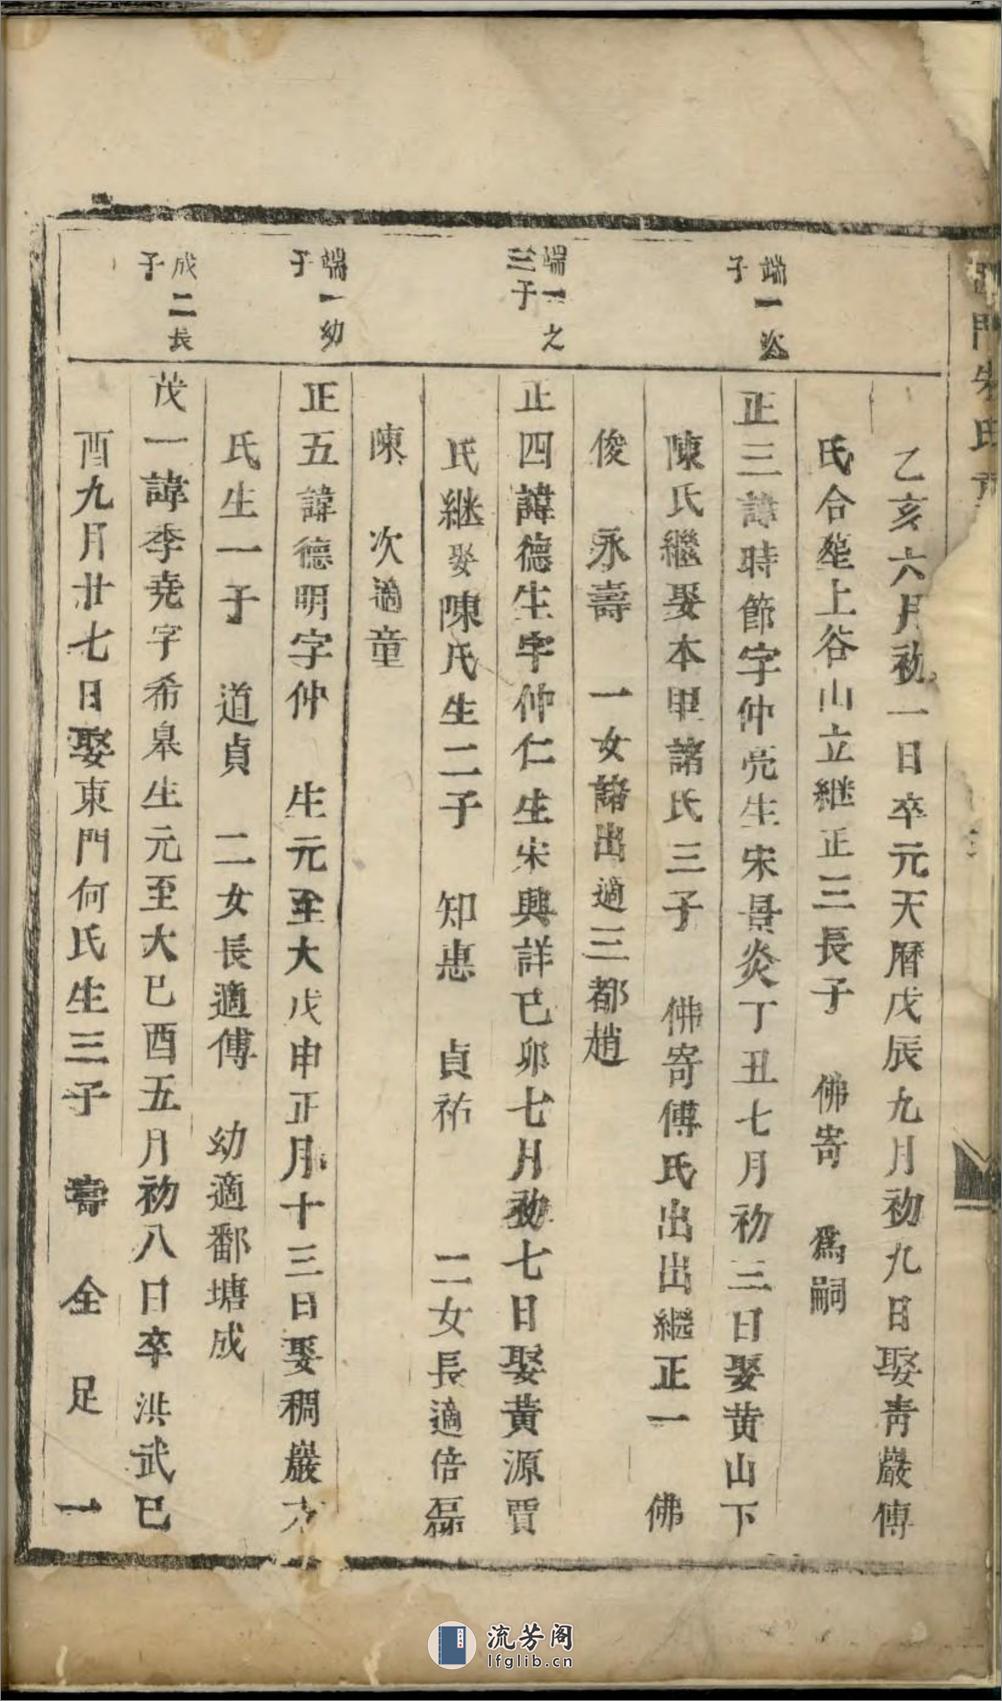 門朱氏
乙亥六月初一日卒元天曆戊辰九月初九日娶靑巖傅
氏合塟上谷山立継正三長子　佛寄　爲嗣
端一次子
正三諱時節字仲亮生宋景炎丁丑七月初三日娶黄山下
陳氏繼娶本里諸氏三子　佛寄傅氏出出繼正一　佛
俊　永壽　一女諸出適三都趙
端一之三子
正四諱德生字仲仁生宋興詳己卯七月初七日娶黄源賈
氏継娶陳氏生二子　知惠　貞祐　二女長適倍磊
陳　次適童
端一幼子
正五諱德明字仲　生元至大戊申正月十三日娶稠巖方
氏生一子　道貞　二女長適傅　幼適鄱塘成
成二長子
茂一諱李堯字希臯生元至大已酉五月初八日卒洪武已
酉九月廿七日娶東門何氏生三子　壽　全　足　一
流芳阁
lfglib.cn